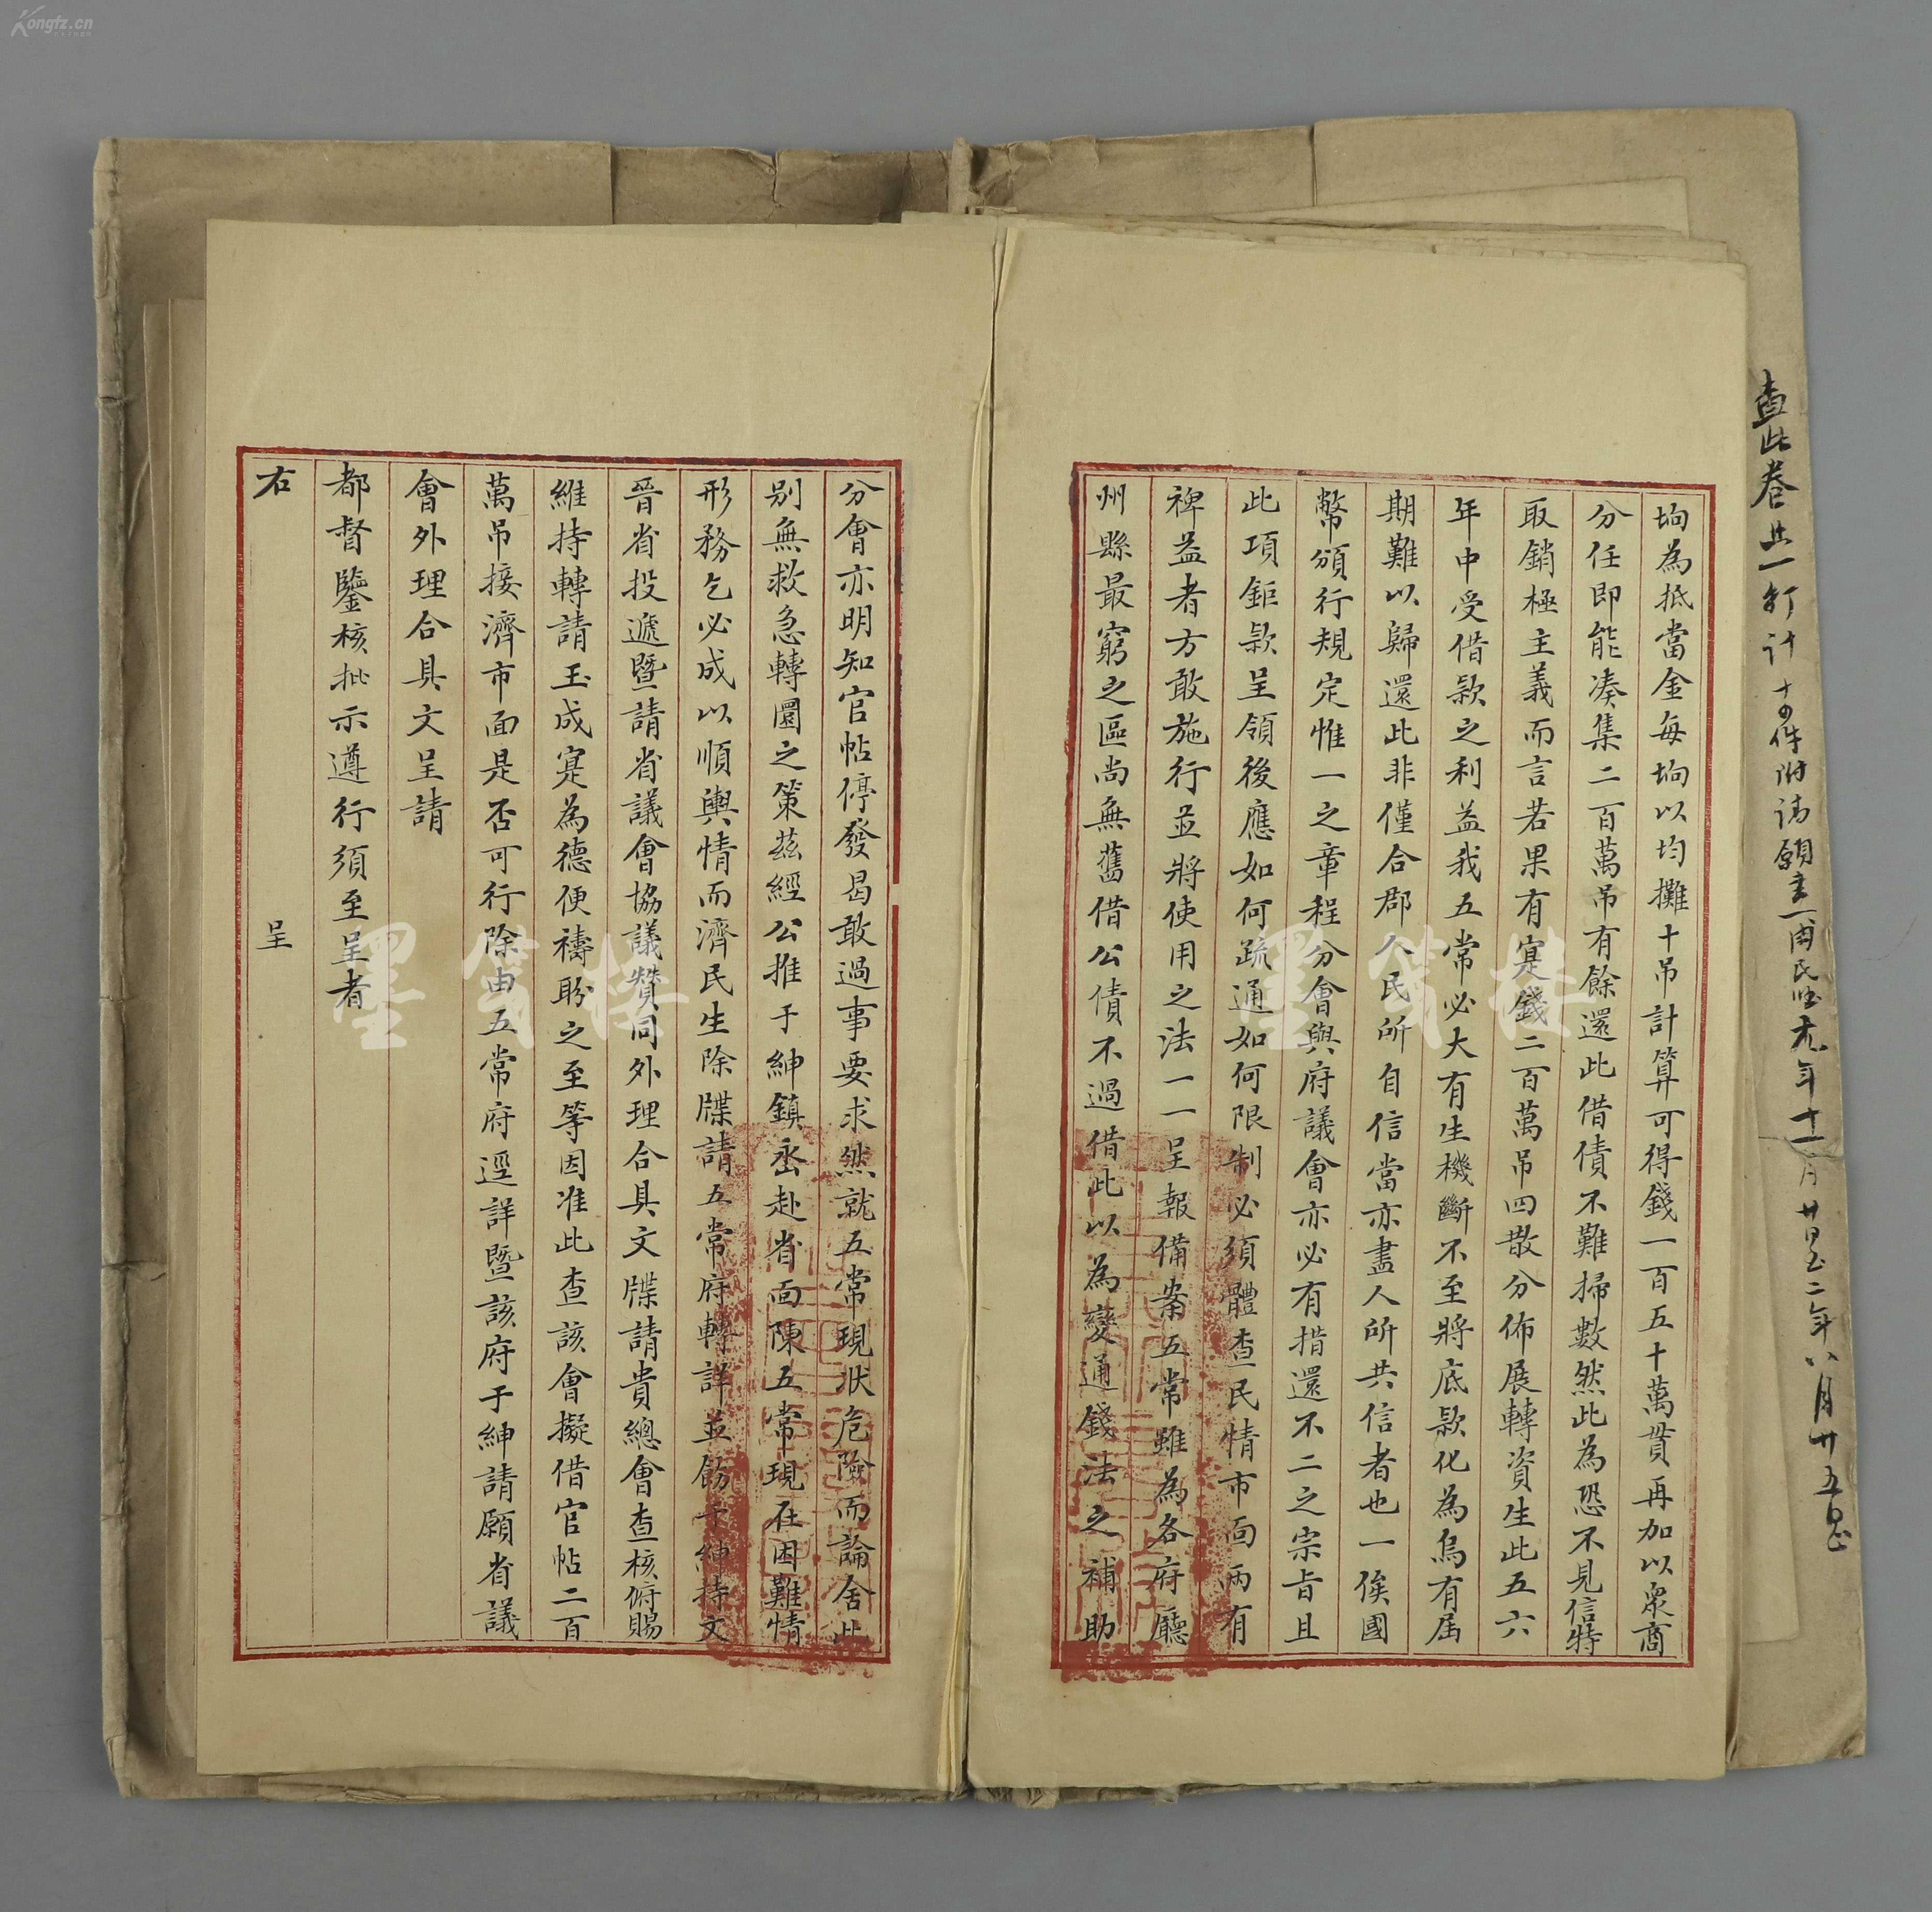 查此卷共一打计十四件附请愿书一函民国元年十一月廿日至二年八月廿五日
垧為抵當金每垧以均攤十吊計算可得錢一百五十萬貫再加以眾商
分任即能凑集二百萬吊有餘還此借債不難掃數然此為恐不見信特
取銷極主義而言若果有寔錢二百萬吊四散分佈展轉資生此五六
年中受借款之利益我五常必大有生機斷不至將底款化為烏有屆
期難以歸還此非僅合郡人民所自信當亦盡人所共信者也一俟國
幣頒行規定惟一之章程分會與府議會亦必有措還不二之宗旨且
此項鉅款呈領後應如何疏通如何限制必須體查民情市面两有
裨益者方敢施行並將使用之法一一呈報備案五常雖為各府廳
州縣最窮之區尚無舊借公債不過借此以為變通錢法之補助
分會亦明知官帖停發曷敢過事要求然就五常現狀危險而論舍此
别無救急轉圜之策兹經公推于紳鎮丞赴省面陳五常現在困難情
形務乞必成以順輿情而濟民生除牒請五常府轉詳並飭于紳持文
晉省投遞暨請省議會協議贊同外理合具文牒請貴總會查核俯賜
維持轉請玉成寔為德便禱盼之至等因准此查該會擬借官帖二百
萬吊接濟市面是否可行除由五常府逕詳暨該府于紳請願省議
會外理合具文呈請
都督鑒核批示遵行須至呈者
右 呈
Kongfz.cn
墨笺楼
墨笺楼